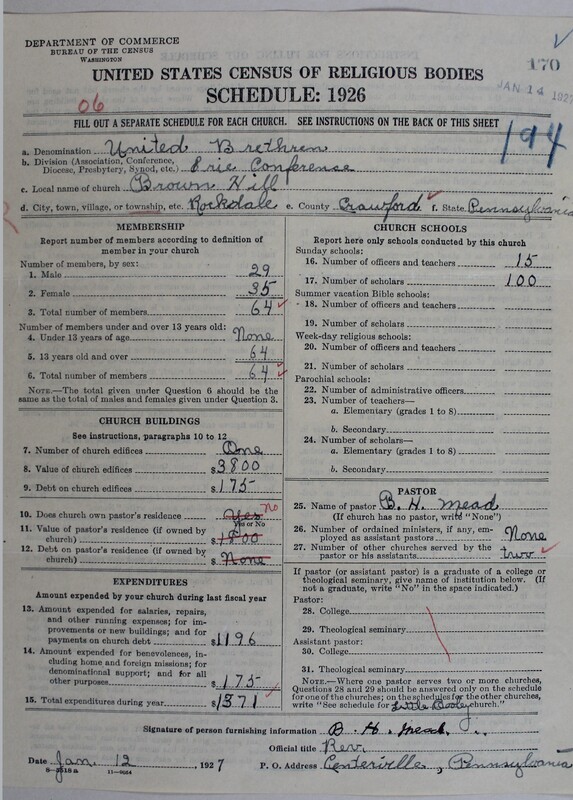 DEPARTMENT OF COMMERCE
BUREAU OF THE CENSUS
WASHINGTON
170
JAN 14 192
UNITED STATES CENSUS OF RELIGIOUS BODIES
SCHEDULE: 1926
06
FILL OUT A SEPARATE SCHEDULE FOR EACH CHURCH. SEE INSTRUCTIONS ON THE BACK OF THIS SHEET
194
a. Denomination United Brethren
b. Division (Association, Conference, Diocese, Presbytery, Synod, etc.) Erie Conference
c. Local name of church Brown Hill
d. City, town, village, or township, etc. Rockdale e. County Crawford f. State Pennsylvania
MEMBERSHIP
Report number of members according to definition of
member in your church
Number of members, by sex:
1. Male 29
2. Female 35
3. Total number of members 64
Number of members under and over 13 years old:
4. Under 13 years of age None
5. 13 years old and over 64
6. Total number of members 64
NOTE.—The total given under Question 6 should be the
same as the total of males and females given under Question 3.
CHURCH BUILDINGS
See instructions, paragraphs 10 to 12
7. Number of church edifices One
8. Value of church edifices $3800
9. Debt on church edifices $175
10. Does church own pastor's residence Yes No
Yes or No
11. Value of pastor's residence (if owned by
church) $1800
12. Debt on pastor's residence (if owned by
church) $None
EXPENDITURES
Amount expended by your church during last fiscal year
13. Amount expended for salaries, repairs,
and other running expenses; for im-
provements or new buildings; and for
payments on church debt $1196
14. Amount expended for benevolences, in-
cluding home and foreign missions; for
denominational support; and for all
other purposes $175
15. Total expenditures during year $1371
CHURCH SCHOOLS
Report here only schools conducted by this church
Sunday schools:
16. Number of officers and teachers 15
17. Number of scholars 100
Summer vacation Bible schools:
18. Number of officers and teachers
19. Number of scholars
Week-day religious schools:
20. Number of officers and teachers
21. Number of scholars
Parochial schools:
22. Number of administrative officers
23. Number of teachers—
a. Elementary (grades 1 to 8)
b. Secondary
24. Number of scholars—
a. Elementary (grades 1 to 8)
b. Secondary
PASTOR
25. Name of pastor B. H. Mead
(If church has no pastor, write "None")
26. Number of ordained ministers, if any, em-
ployed as assistant pastors None
27. Number of other churches served by the
pastor or his assistants two
If pastor (or assistant pastor) is a graduate of a college or
theological seminary, give name of institution below. (If
not a graduate, write "No" in the space indicated.)
Pastor:
28. College
29. Theological seminary
Assistant pastor:
30. College
31. Theological seminary
NOTE.—Where one pastor serves two or more churches,
Questions 28 and 29 should be answered only on the schedule
for one of the churches; on the schedules for the other churches,
write "See schedule for Little Cooley church."
Signature of person furnishing information B. H. Mead
Official title Rev.
Date Jan. 12, 1927 P. O. Address Centerville, Pennsylvania
8—3518a 11—9024